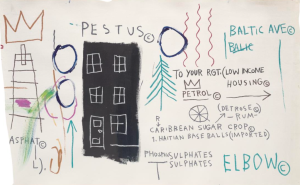 PESTUS©
BALTIC AVE©
BALTIC
TO YOUR RGT. (LOW INCOME
HOUSING©
PETROL©
(DETROSE©
—RUM—
R
CARIBBEAN SUGAR CROP©
1. HAITIAN BASEBALLS (IMPORTED)
ASPHAT©
L).
PHOSPHOSULPHATES
SULPHATES
ELBOW©